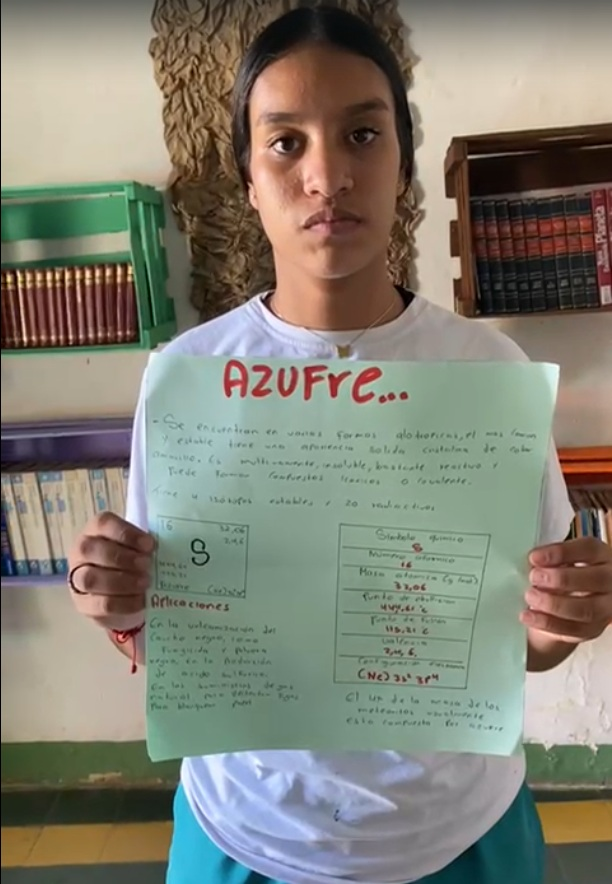 AZUFre...
- Se encuentran en varias formas alotropicas, el mas comun
y estable tiene una apariencia solida cristalina de color
amarillo. Es multivariante, insoluble, bastante reactivo y
Puede Formar Compuestos Ionicos o Covalente.
Tiene 4 isotopos estables y 20 radiactivos
16 32,06
2,4,6
S
444,61
Azufre (Ne)3s² 3p⁴
Aplicaciones
En la vulcanizacion del
Caucho negro, como
Fungicida y polvora
negra, en la
de acido sulfurico,
En los suministros de gas
natural para
Para bloquear
Simbolo quimico
S
Número atomico
16
Masa atomica (g/mol)
32,06
Punto de ebullicion
444,61°c
Punto de Fusion
115,21°c
Valencia
2,4,6,
Configuracion electronica
(Ne) 3s² 3p⁴
El 4% de la masa de los
meteoritos
esta compuesta Por azufre